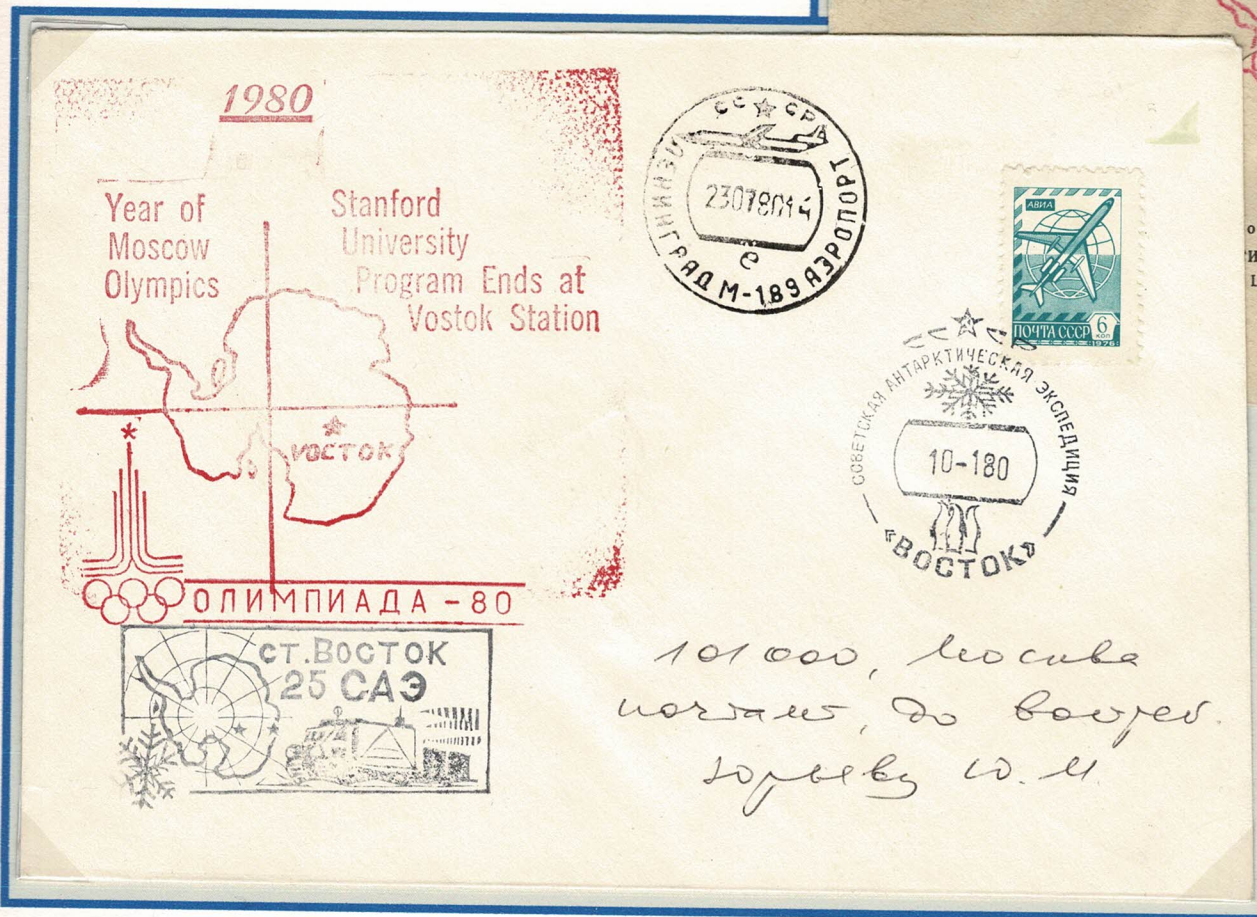 1980
Year of
Moscow
Olympics
Stanford
University
Program Ends at
Vostok Station
ВОСТОК
ОЛИМПИАДА - 80
ст. ВОСТОК
25 САЭ
СССР
ЛЕНИНГРАД М-189 АЭРОПОРТ
23078014
е
АВИА
ПОЧТА СССР
6
КОП
1976
СОВЕТСКАЯ АНТАРКТИЧЕСКАЯ ЭКСПЕДИЦИЯ
10-180
«ВОСТОК»
101000, Москва
почтамт, до востреб.
Юрьеву Ю. М.